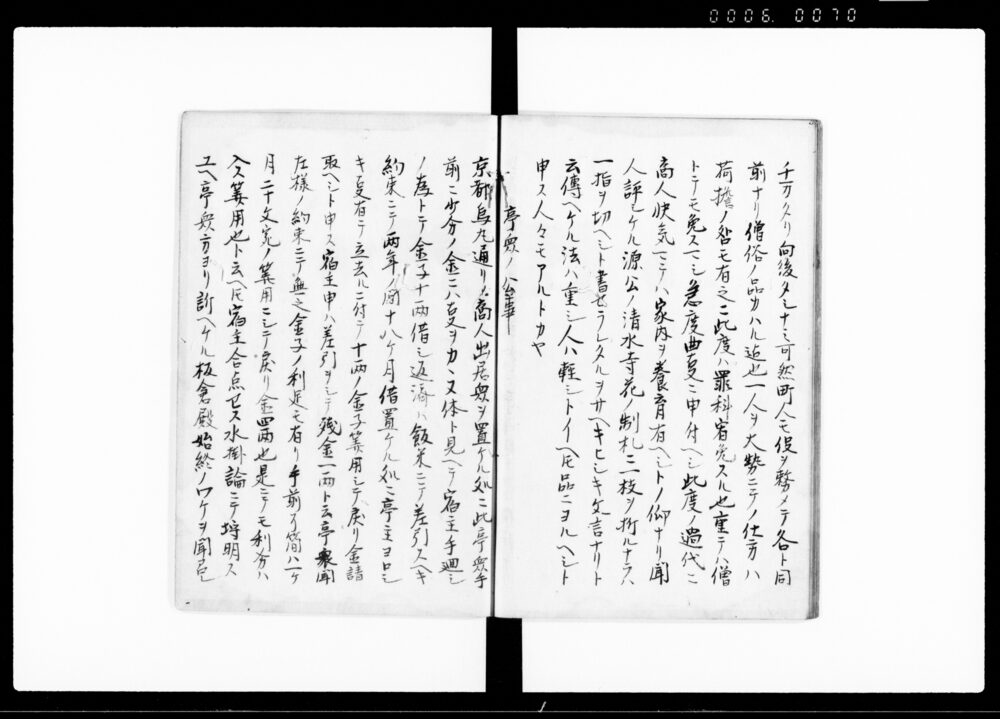 0006. 0070
千万タリ向後タシナミ可然町人モ役ヲ務メテ各ト同
前ナリ僧俗ノ品カハル迄也一人ヲ大勢ニテノ仕方ハ
荷擔ノ咎モ有之ニ此度ハ罪科宥免スル也重テハ僧
トテモ免スマシ急度曲事ニ申付ヘシ此度ノ過代ニ
商人快気マテハ家内ヲ養育有ヘシトノ仰ナリ聞
人評シケル源公ノ清水寺花ノ制札ニ一枝ヲ折ルナラハ
一指ヲ切ヘシト書セラレタルヲサヘキヒシキ文言ナリト
云傳ヘケル法ハ重シ人ハ軽シトイヘ𪜈品ニヨルヘシト
申ス人々モアルトカヤ
亭衆ノ公事
京都烏丸通リノ商人出居衆ヲ置ケル処ニ此亭衆手
前ニ少分ノ金ニハ事ヲカヽヌ体ト見ヘテ宿主手廻シ
ノ為トテ金子十両借シ返済ハ飯米ニテ差引スヘキ
約束ニテ両年ノ間十八ケ月借置ケル処ニ亭主ヨロシ
キ事有テ立去ルニ付テ十両ノ金子算用シテ戻リ金請
取ヘシト申ス宿主申ハ差引ヲシテ残金一両ト云亭衆聞
左様ノ約束ニテ無之金子ノ利足モ有リ手前ノ借ハ一ケ
月二十文宛ノ算用ニシテ戻リ金四両也是ニテモ利分ハ
入ス算用也ト云ヘ𪜈宿主合点セス水掛論ニテ埒明ス
ユヘ亭衆方ヨリ訴ヘケル板倉殿始終ノワケヲ聞召シ